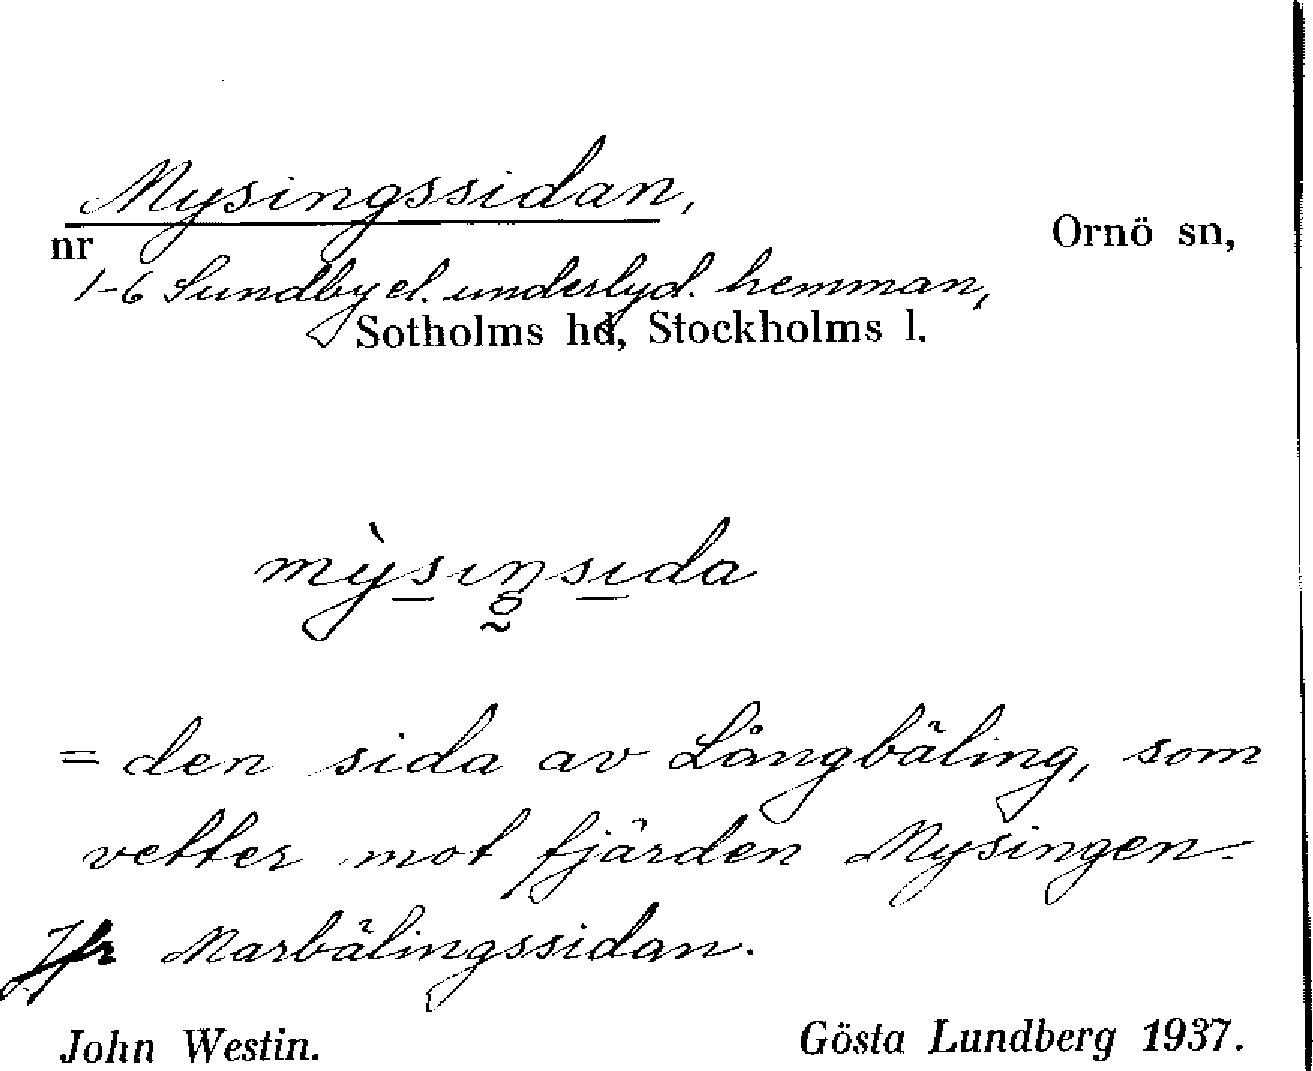 Mysingssidan,
nr Ornö sn,
1-6 Sundby el. underlyd. hemman,
Sotholms hd, Stockholms l.
mỳsıŋsıda
= den sida av Långbäling, som
vetter mot fjärden Mysingen.
Jfr Marbälingssidan.
John Westin. Gösta Lundberg 1937.